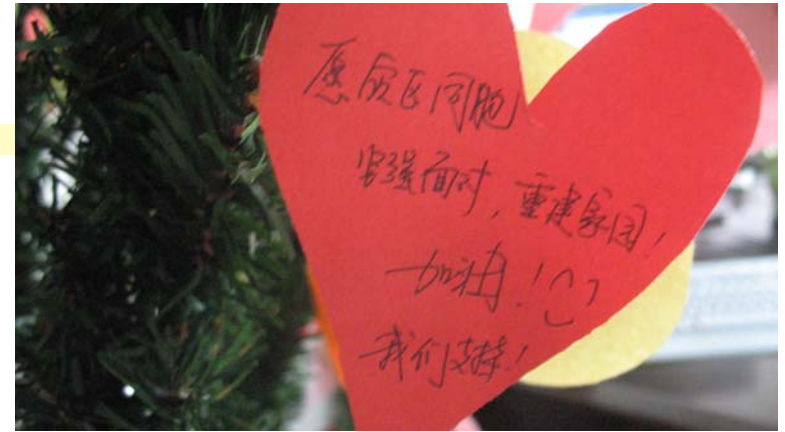 愿灾区同胞
坚强面对，重建家园！
加油！
我们支持！